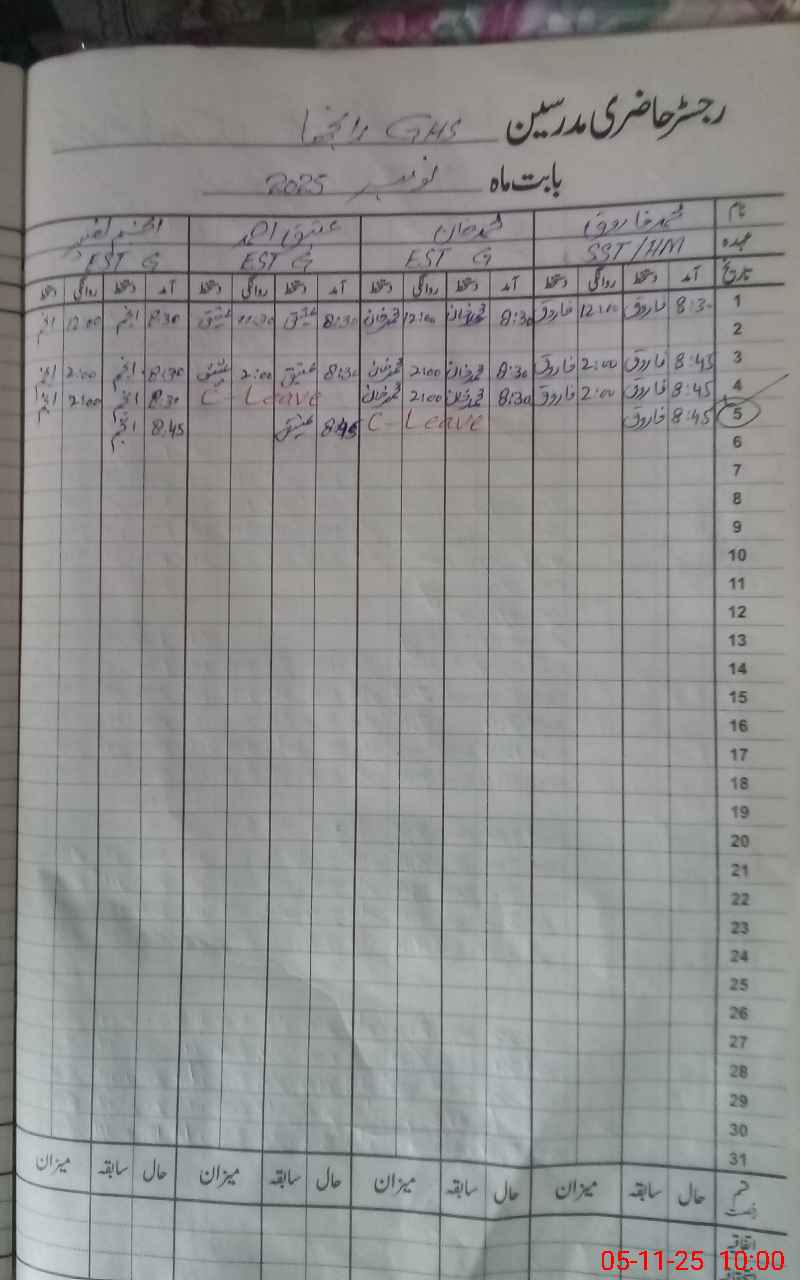 رجسٹر حاضری مدرسین GHS رانجھا
بابت ماہ نومبر 2025
نام محمد فاروق محمد خان عتیق احمد
عہدہ SST/HM EST G EST G EST G
تاریخ آمد دستخط روانگی دستخط آمد دستخط روانگی دستخط آمد دستخط روانگی دستخط آمد دستخط روانگی دستخط
1 8:30 فاروق 12:00 فاروق 8:30 محمد خان 12:00 محمد خان 8:30 عتیق عتیق 8:30 انجم 12:00 انجم
2
3 8:45 فاروق 2:00 فاروق 8:30 محمد خان 2:00 محمد خان 8:30 عتیق 2:00 عتیق 8:30 انجم 2:00 انجم
4 8:45 فاروق 2:00 فاروق 8:30 محمد خان 2:00 محمد خان C-Leave 8:30 انجم 2:00 انجم
5 8:45 فاروق C-Leave 8:45 عتیق 8:45 انجم
6
7
8
9
10
11
12
13
14
15
16
17
18
19
20
21
22
23
24
25
26
27
28
29
30
31
قسم رخصت حال سابقہ میزان حال سابقہ میزان حال سابقہ میزان حال سابقہ میزان
اتفاقیہ
05-11-25 10:00